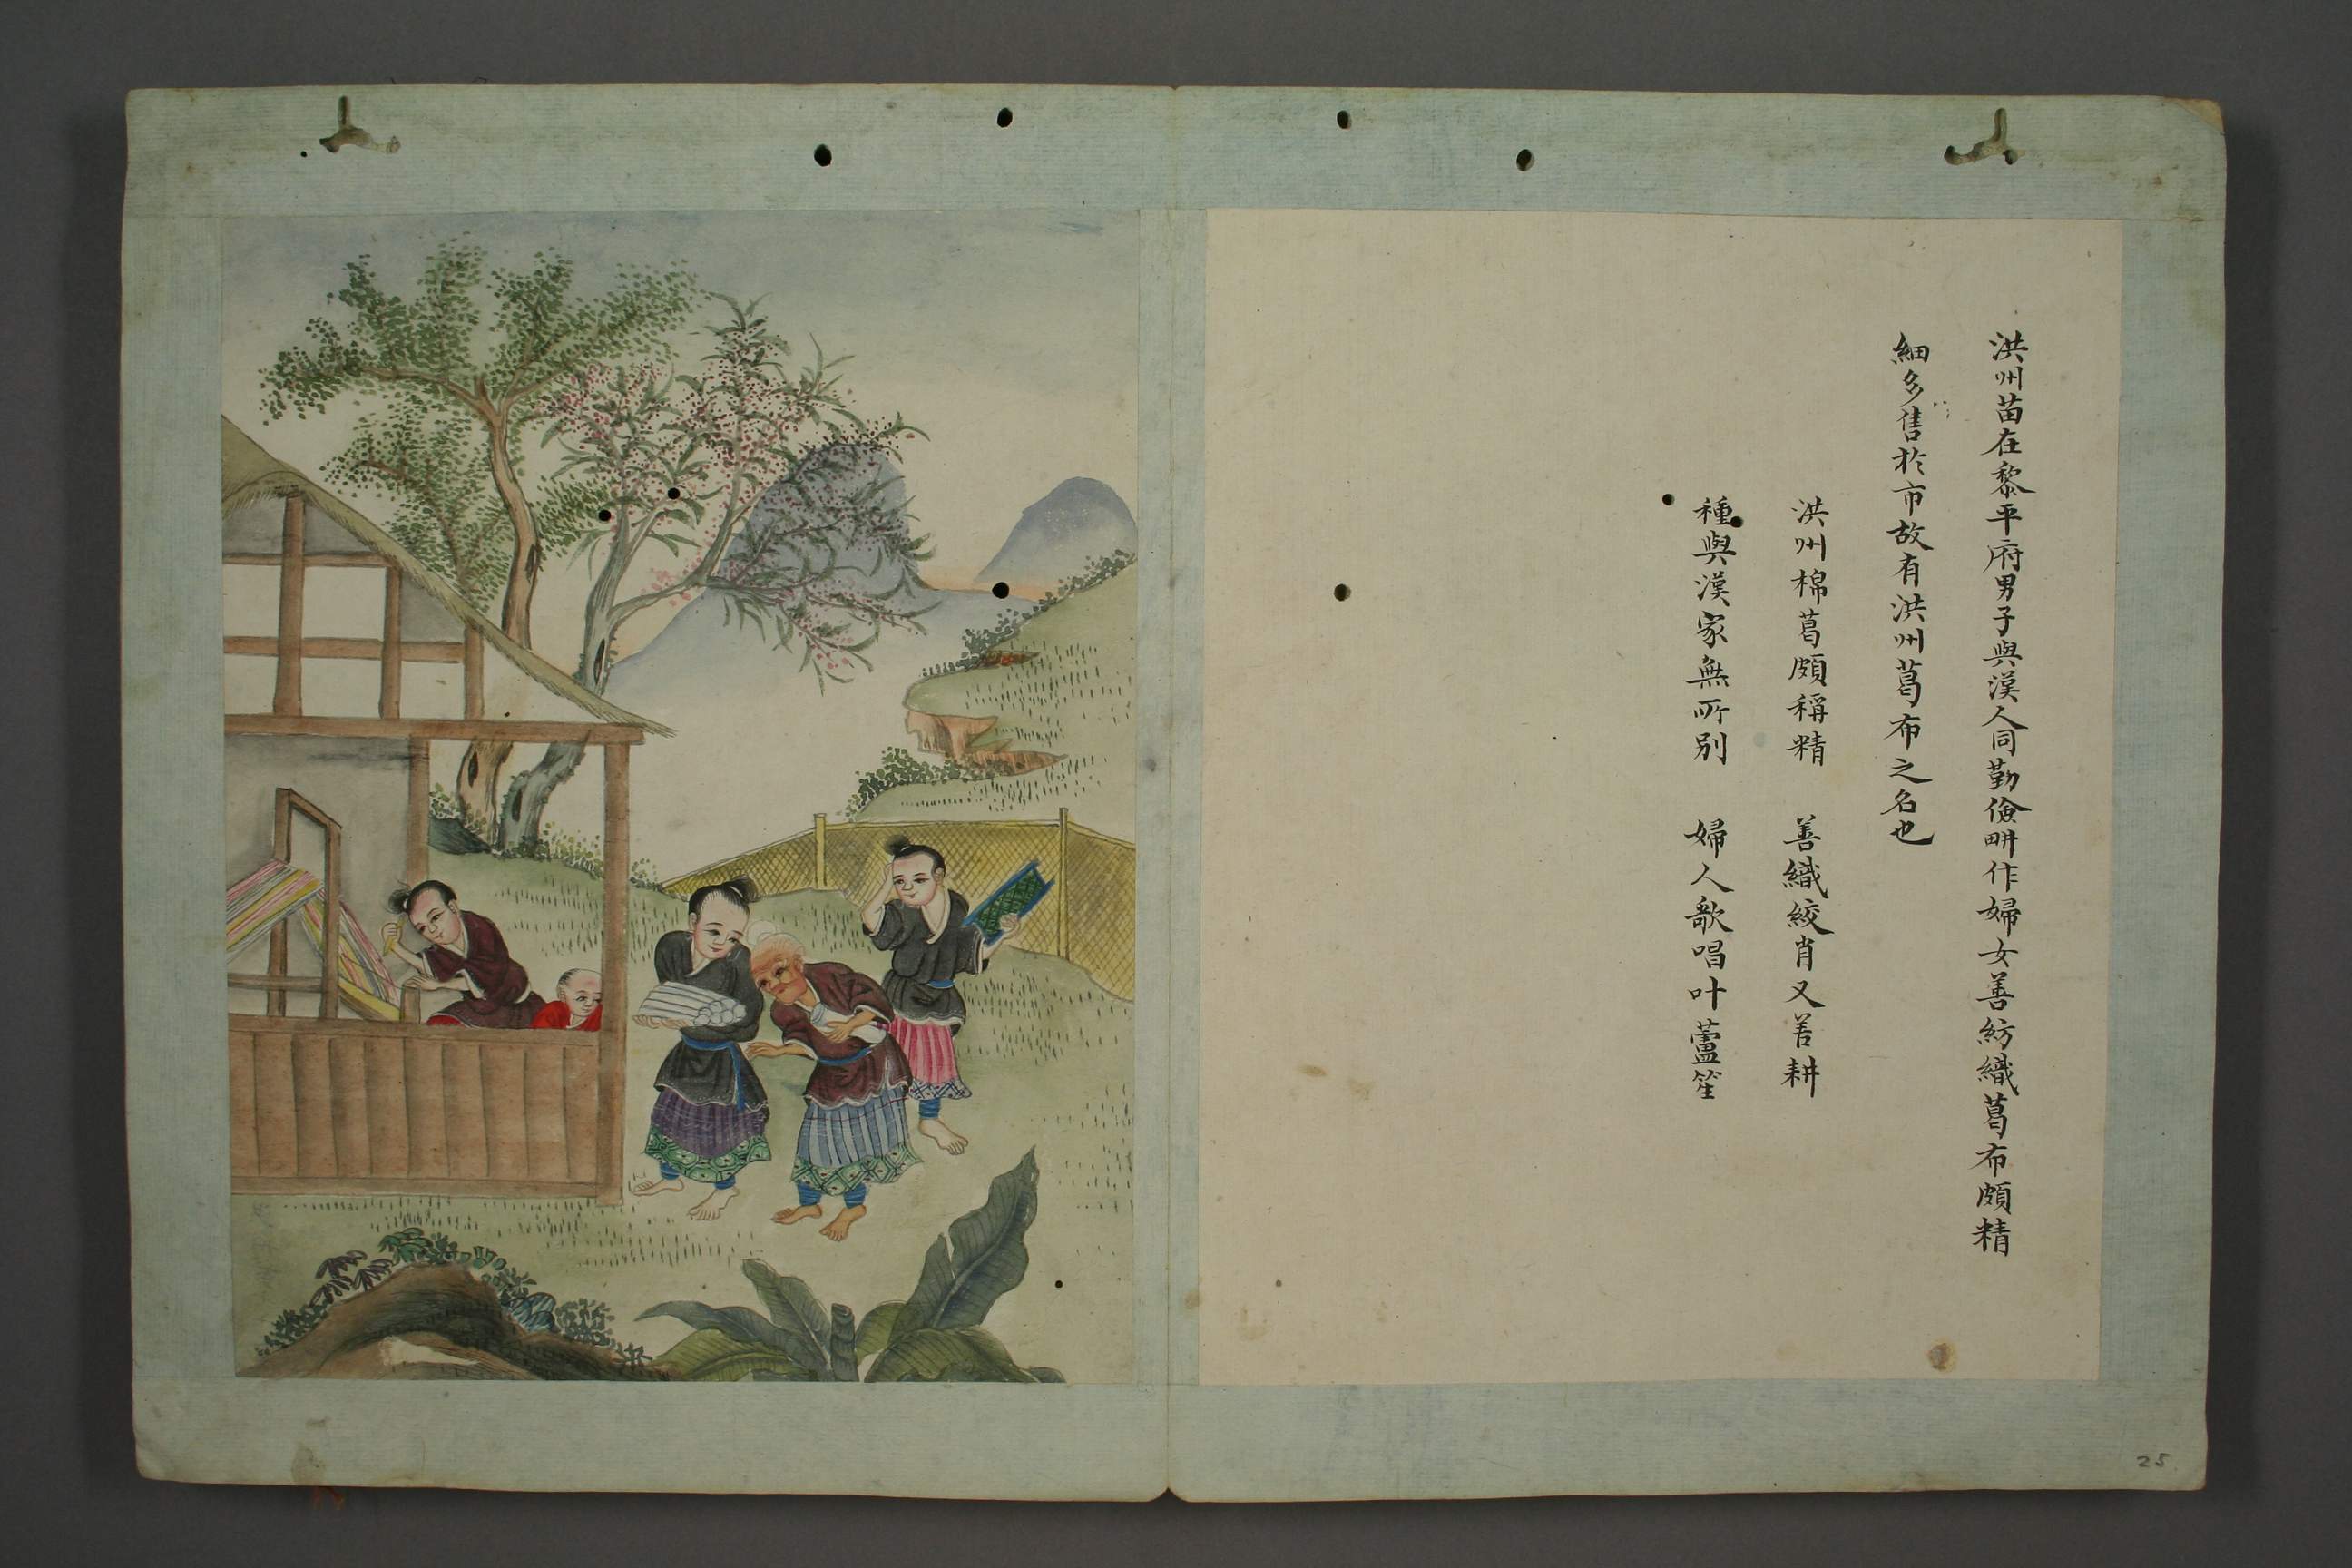 洪州苗在黎平府男子與漢人同勤儉畊作婦女善紡織葛布頗精
細多售於市故有洪州葛布之名也
洪州棉葛頗稱精 善織絞肖又善耕
種與漢家無所別 婦人歌唱叶蘆笙
25